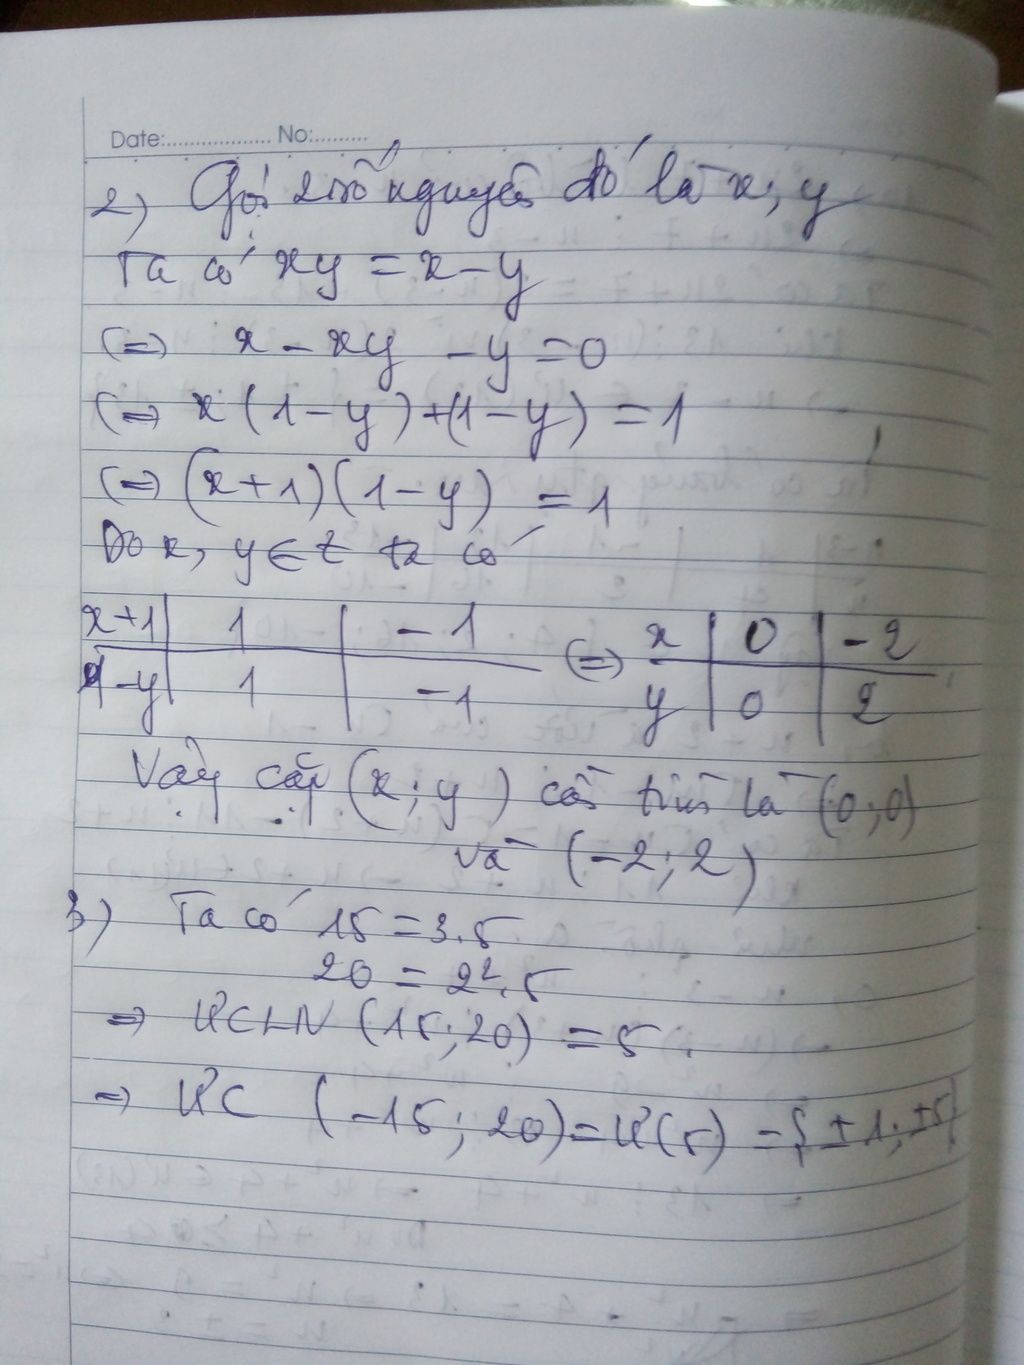 Date:.................... No:.........
2) Gọi 2 số nguyên đó là x; y
Ta có xy = x - y
(=) x - xy - y = 0
(=) x(1-y)+(1-y) = 1
(=) (x+1)(1-y) = 1
Do x, y ∈ Z ta có
x+1 | 1 | -1 (=) x | 0 | -2
1-y | 1 | -1 y | 0 | 2
Vậy cặp (x; y) cần tìm là (0;0)
và (-2; 2)
3) Ta có 15 = 3.5
20 = 2².5
=> ƯCLN (15; 20) = 5.
=> ƯC (-15; 20) = Ư(5) = {±1; ±5}